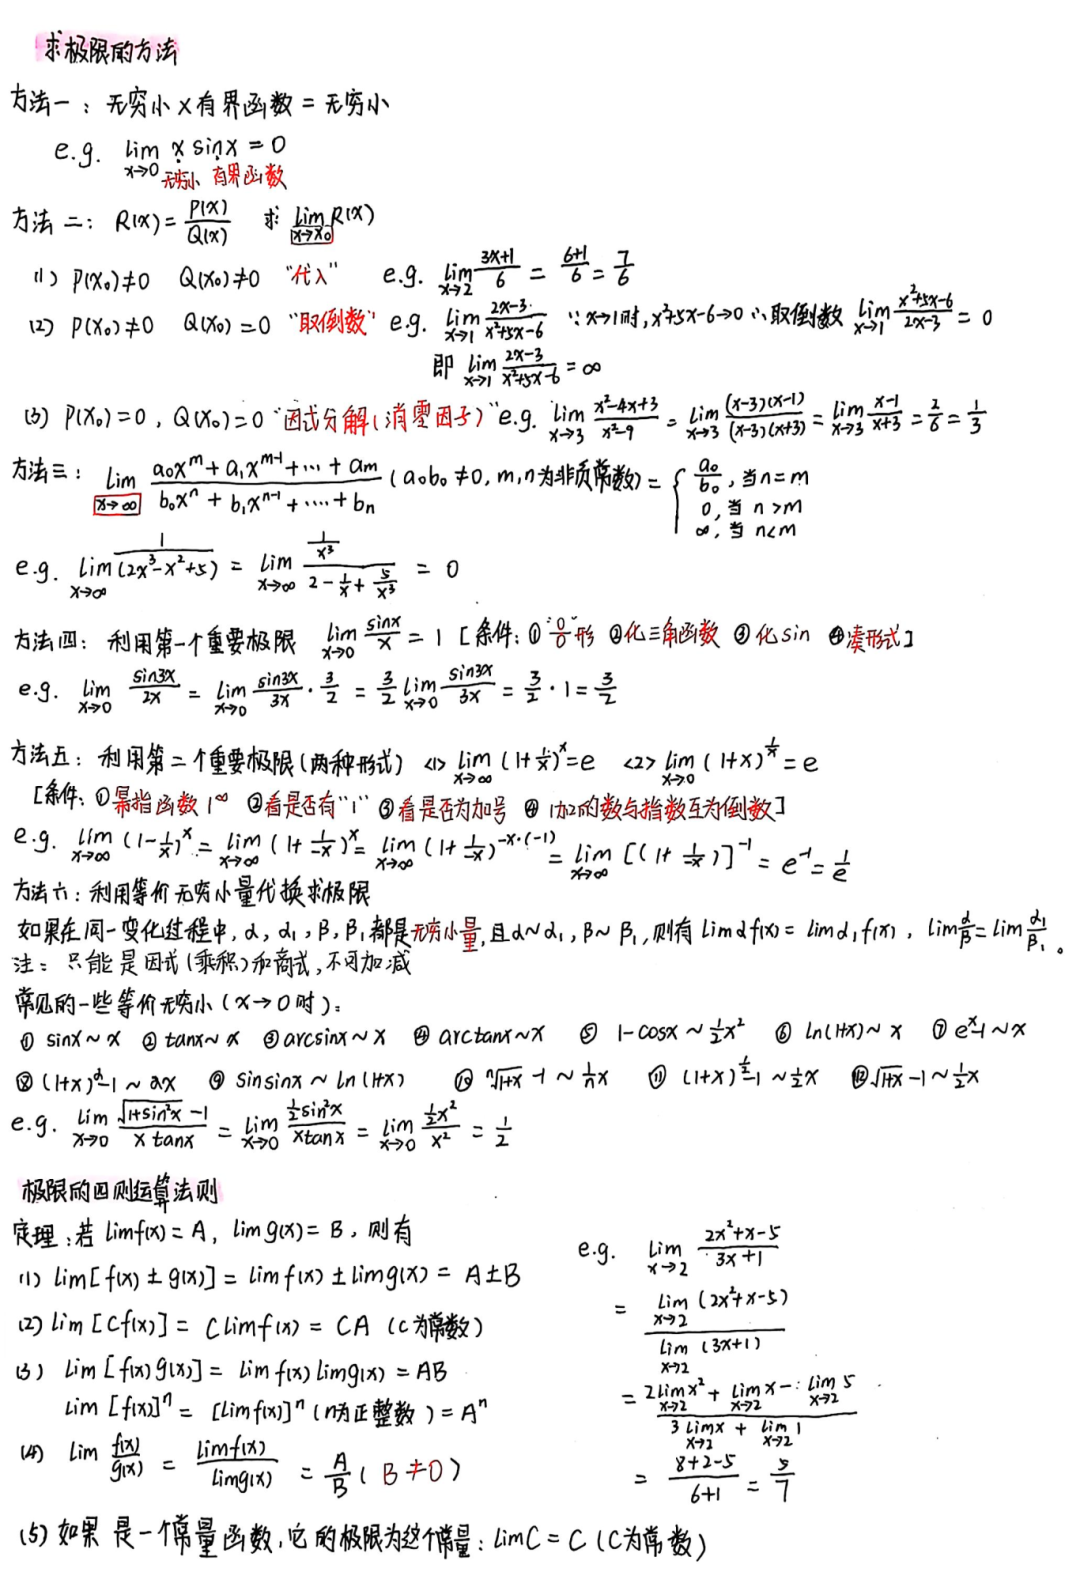 求极限的方法
方法一：无穷小×有界函数=无穷小
e.g. lim x→0 x sinx = 0
无穷小 有界函数
方法二：R(x)=P(x)/Q(x) 求 lim x→x₀ R(x)
(1) P(x₀)≠0 Q(x₀)≠0 "代入" e.g. lim x→2 (3x+1)/6 = (6+1)/6 = 7/6
(2) P(x₀)≠0 Q(x₀)=0 "取倒数" e.g. lim x→1 (2x-3)/(x²+5x-6) ∵x→1时,x²+5x-6→0 ∴取倒数 lim x→1 (x²+5x-6)/(2x-3) = 0
即 lim x→1 (2x-3)/(x²+5x-6) = ∞
(3) P(x₀)=0, Q(x₀)=0 "因式分解(消零因子)" e.g. lim x→3 (x²-4x+3)/(x²-9) = lim x→3 (x-3)(x-1)/(x-3)(x+3) = lim x→3 (x-1)/(x+3) = 2/6 = 1/3
方法三：lim x→∞ (a₀xᵐ+a₁xᵐ⁻¹+…+aₘ)/(b₀xⁿ+b₁xⁿ⁻¹+……+bₙ) (a₀b₀≠0, m,n为非负常数) = { a₀/b₀, 当n=m
0, 当 n>m
∞, 当 n<m
e.g. lim x→∞ 1/(2x³-x²+5) = lim x→∞ (1/x³)/(2-1/x+5/x³) = 0
方法四：利用第一个重要极限 lim x→0 sinx/x = 1 [条件：①"0/0"形 ②化三角函数 ③化sin ④凑形式]
e.g. lim x→0 sin3x/2x = lim x→0 sin3x/3x · 3/2 = 3/2 lim x→0 sin3x/3x = 3/2 · 1 = 3/2
方法五：利用第二个重要极限(两种形式) <1> lim x→∞ (1+1/x)ˣ=e <2> lim x→0 (1+x)^(1/x) = e
[条件：①幂指函数1^∞ ②看是否有"1" ③看是否为加号 ④ 1加的数与指数互为倒数]
e.g. lim x→∞ (1-1/x)ˣ = lim x→∞ (1+1/-x)ˣ = lim x→∞ (1+1/-x)^(-x·(-1)) = lim x→∞ [(1+1/-x)]⁻¹ = e⁻¹ = 1/e
方法六：利用等价无穷小量代换求极限
如果在同一变化过程中,α,α₁,β,β₁都是无穷小量,且α~α₁,β~β₁,则有 limαf(x)=limα₁f(x), lim α/β = lim α₁/β₁。
注：只能是因式(乘积)和商式,不可加减
常见的一些等价无穷小(x→0时)：
① sinx~x ② tanx~x ③ arcsinx~x ④ arctanx~x ⑤ 1-cosx~½x² ⑥ ln(1+x)~x ⑦ eˣ-1~x
⑧ (1+x)^α-1~αx ⑨ sinsinx~ln(1+x) ⑩ ⁿ√(1+x) -1~(1/n)x ⑪ (1+x)^½-1~½x ⑫ √(1+x) -1~½x
e.g. lim x→0 (√(1+sin²x) -1)/(x tanx) = lim x→0 (½sin²x)/(xtanx) = lim x→0 (½x²)/x² = 1/2
极限的四则运算法则
定理：若 limf(x)=A, limg(x)=B, 则有
(1) lim[f(x)±g(x)] = limf(x)±limg(x) = A±B
(2) lim[Cf(x)] = Climf(x) = CA (C为常数)
(3) lim[f(x)g(x)] = limf(x)limg(x) = AB
lim[f(x)]ⁿ = [limf(x)]ⁿ (n为正整数) = Aⁿ
(4) lim f(x)/g(x) = limf(x)/limg(x) = A/B (B≠0)
(5) 如果 是一个常量函数,它的极限为这个常量：limC=C (C为常数)
e.g. lim x→2 (2x²+x-5)/(3x+1)
= lim x→2 (2x²+x-5) / lim x→2 (3x+1)
= (2lim x→2 x² + lim x→2 x - lim x→2 5)/(3 lim x→2 x + lim x→2 1)
= (8+2-5)/(6+1) = 5/7